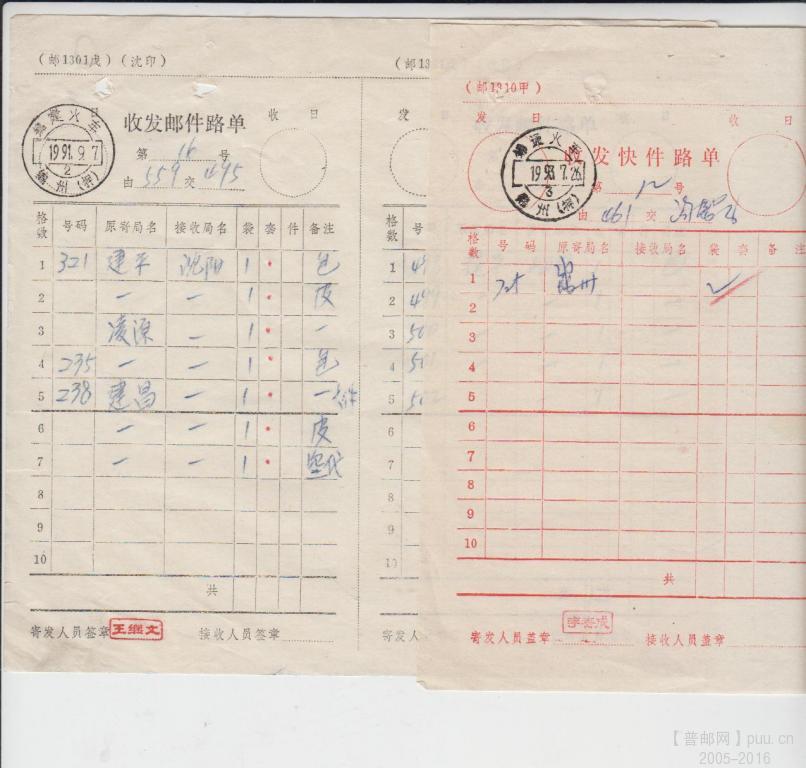 (邮1301戊)(沈印)
收发邮件路单
收 日
19 91. 9. 7
2
锦州(押)
第 16 号
由 559 交 495
格数 号码 原寄局名 接收局名 袋 套 件 备注
1 321 建平 沈阳 1 · 包
2 一 一 1 · 皮
3 凌源 一 1 · 一
4 235 一 一 1 · 包
5 238 建昌 一 1 · 一
6 一 一 1 · 皮
7 一 一 1 ·
8
9
10
共
寄发人员签章 王继文 接收人员签章
(邮13
发
格数 号
1
2
3
4
5
6
7
8
9
10
寄发人员
(邮1310甲)
发 日
收 日
收发快件路单
19 93. 7. 26
3
锦州(押)
第 12 号
由 461 交
格数 号码 原寄局名 接收局名 袋 套 备注
1
2
3
4
5
6
7
8
9
10
共
寄发人员盖章 接收人员盖章
【普邮网】puu.cn
2005-2016